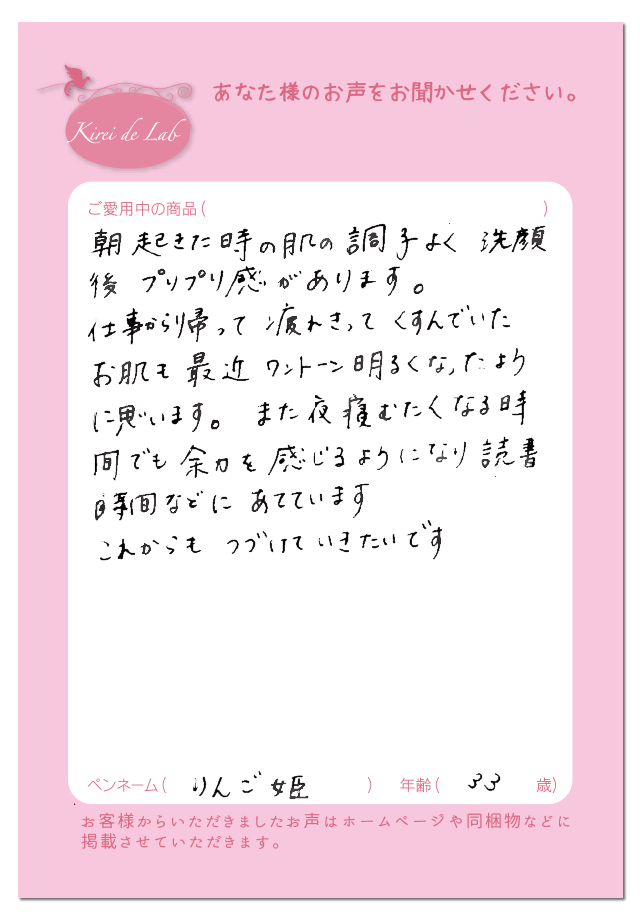 あなた様のお声をお聞かせください。
Kirei de Lab
ご愛用中の商品（　　　）
朝起きた時の肌の調子よく 洗顔
後 プリプリ感があります。
仕事から帰って 疲れきって くすんでいた
お肌も 最近 ワントーン明るくなったよう
に思います。 また夜 寝むたくなる時
間でも 余力を 感じるようになり 読書
時間などに あてています
これからも つづけていきたいです
ペンネーム（ りんご姫 ） 年齢（ 33 歳）
お客様からいただきましたお声はホームページや同梱物などに
掲載させていただきます。